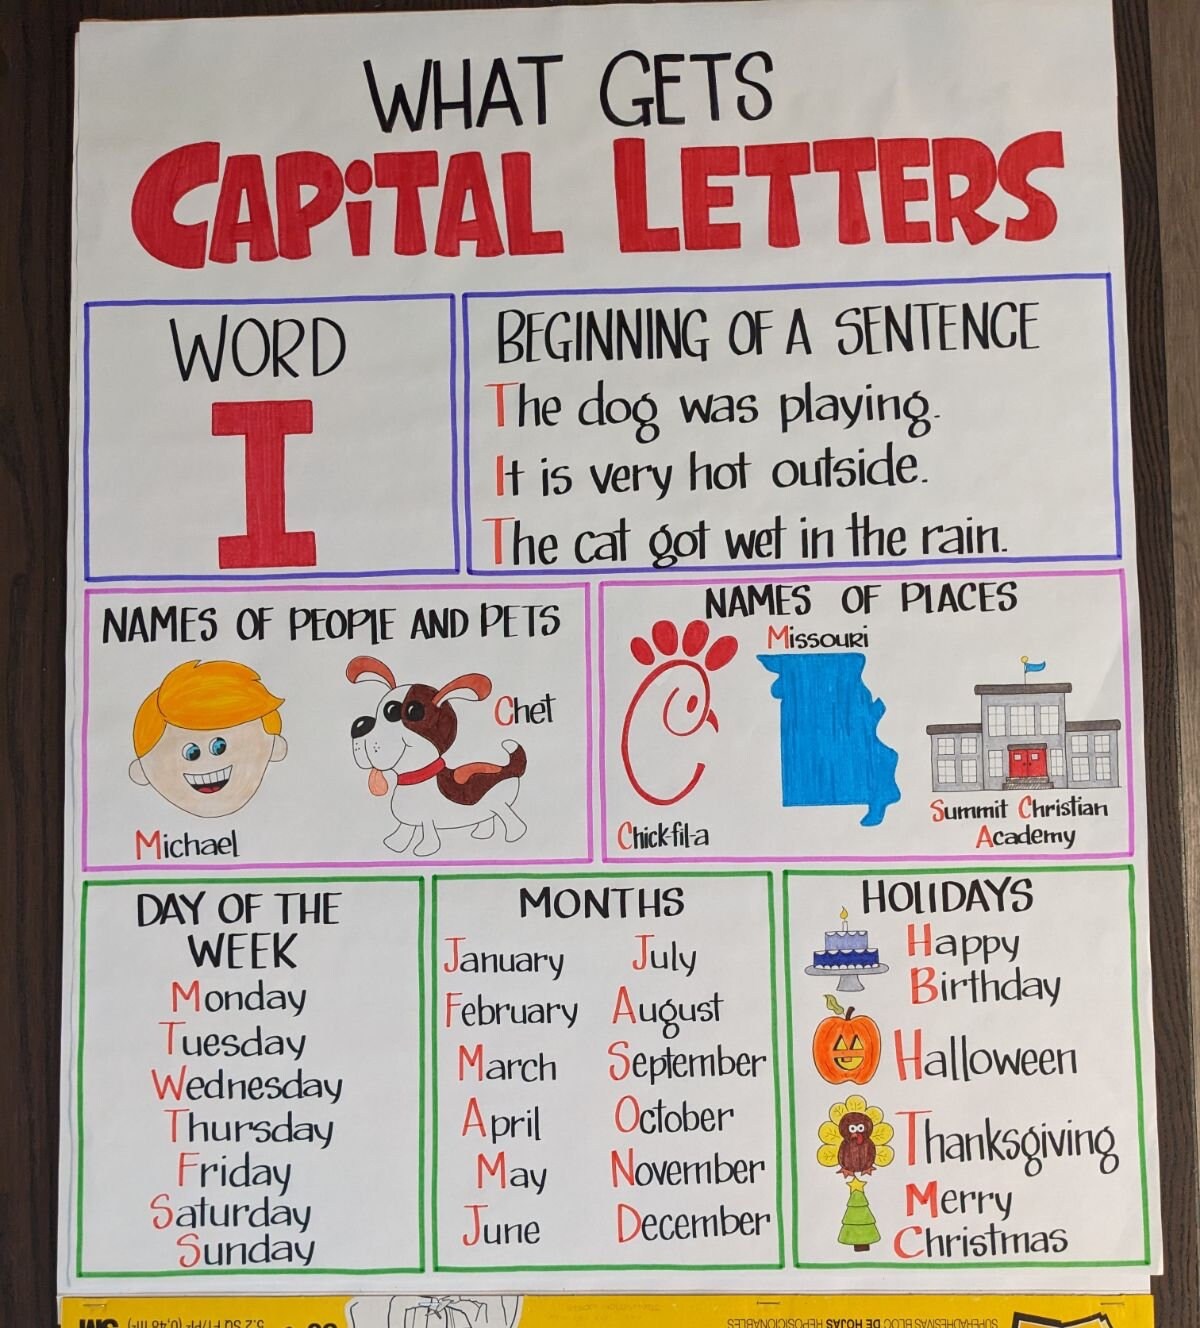 WHAT GETS
CAPiTAL LETTERS
WORD
I
BEGINNING OF A SENTENCE
The dog was playing.
It is very hot outside.
The cat got wet in the rain.
NAMES OF PEOPLE AND PETS
Chet
Michael
NAMES OF PLACES
Missouri
Chick-fil-a
Summit Christian
Academy
DAY OF THE
WEEK
Monday
Tuesday
Wednesday
Thursday
Friday
Saturday
Sunday
MONTHS
January
February
March
April
May
June
July
August
September
October
November
December
HOLIDAYS
Happy
Birthday
Halloween
Thanksgiving
Merry
Christmas
SUPERADHESIVAS BLOC DE HOJAS REPOSICIONABLES